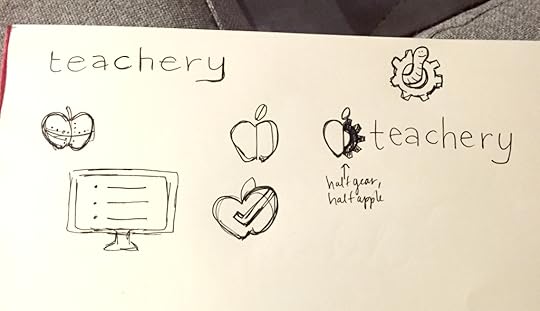 teachery
teachery
half gear,
half apple